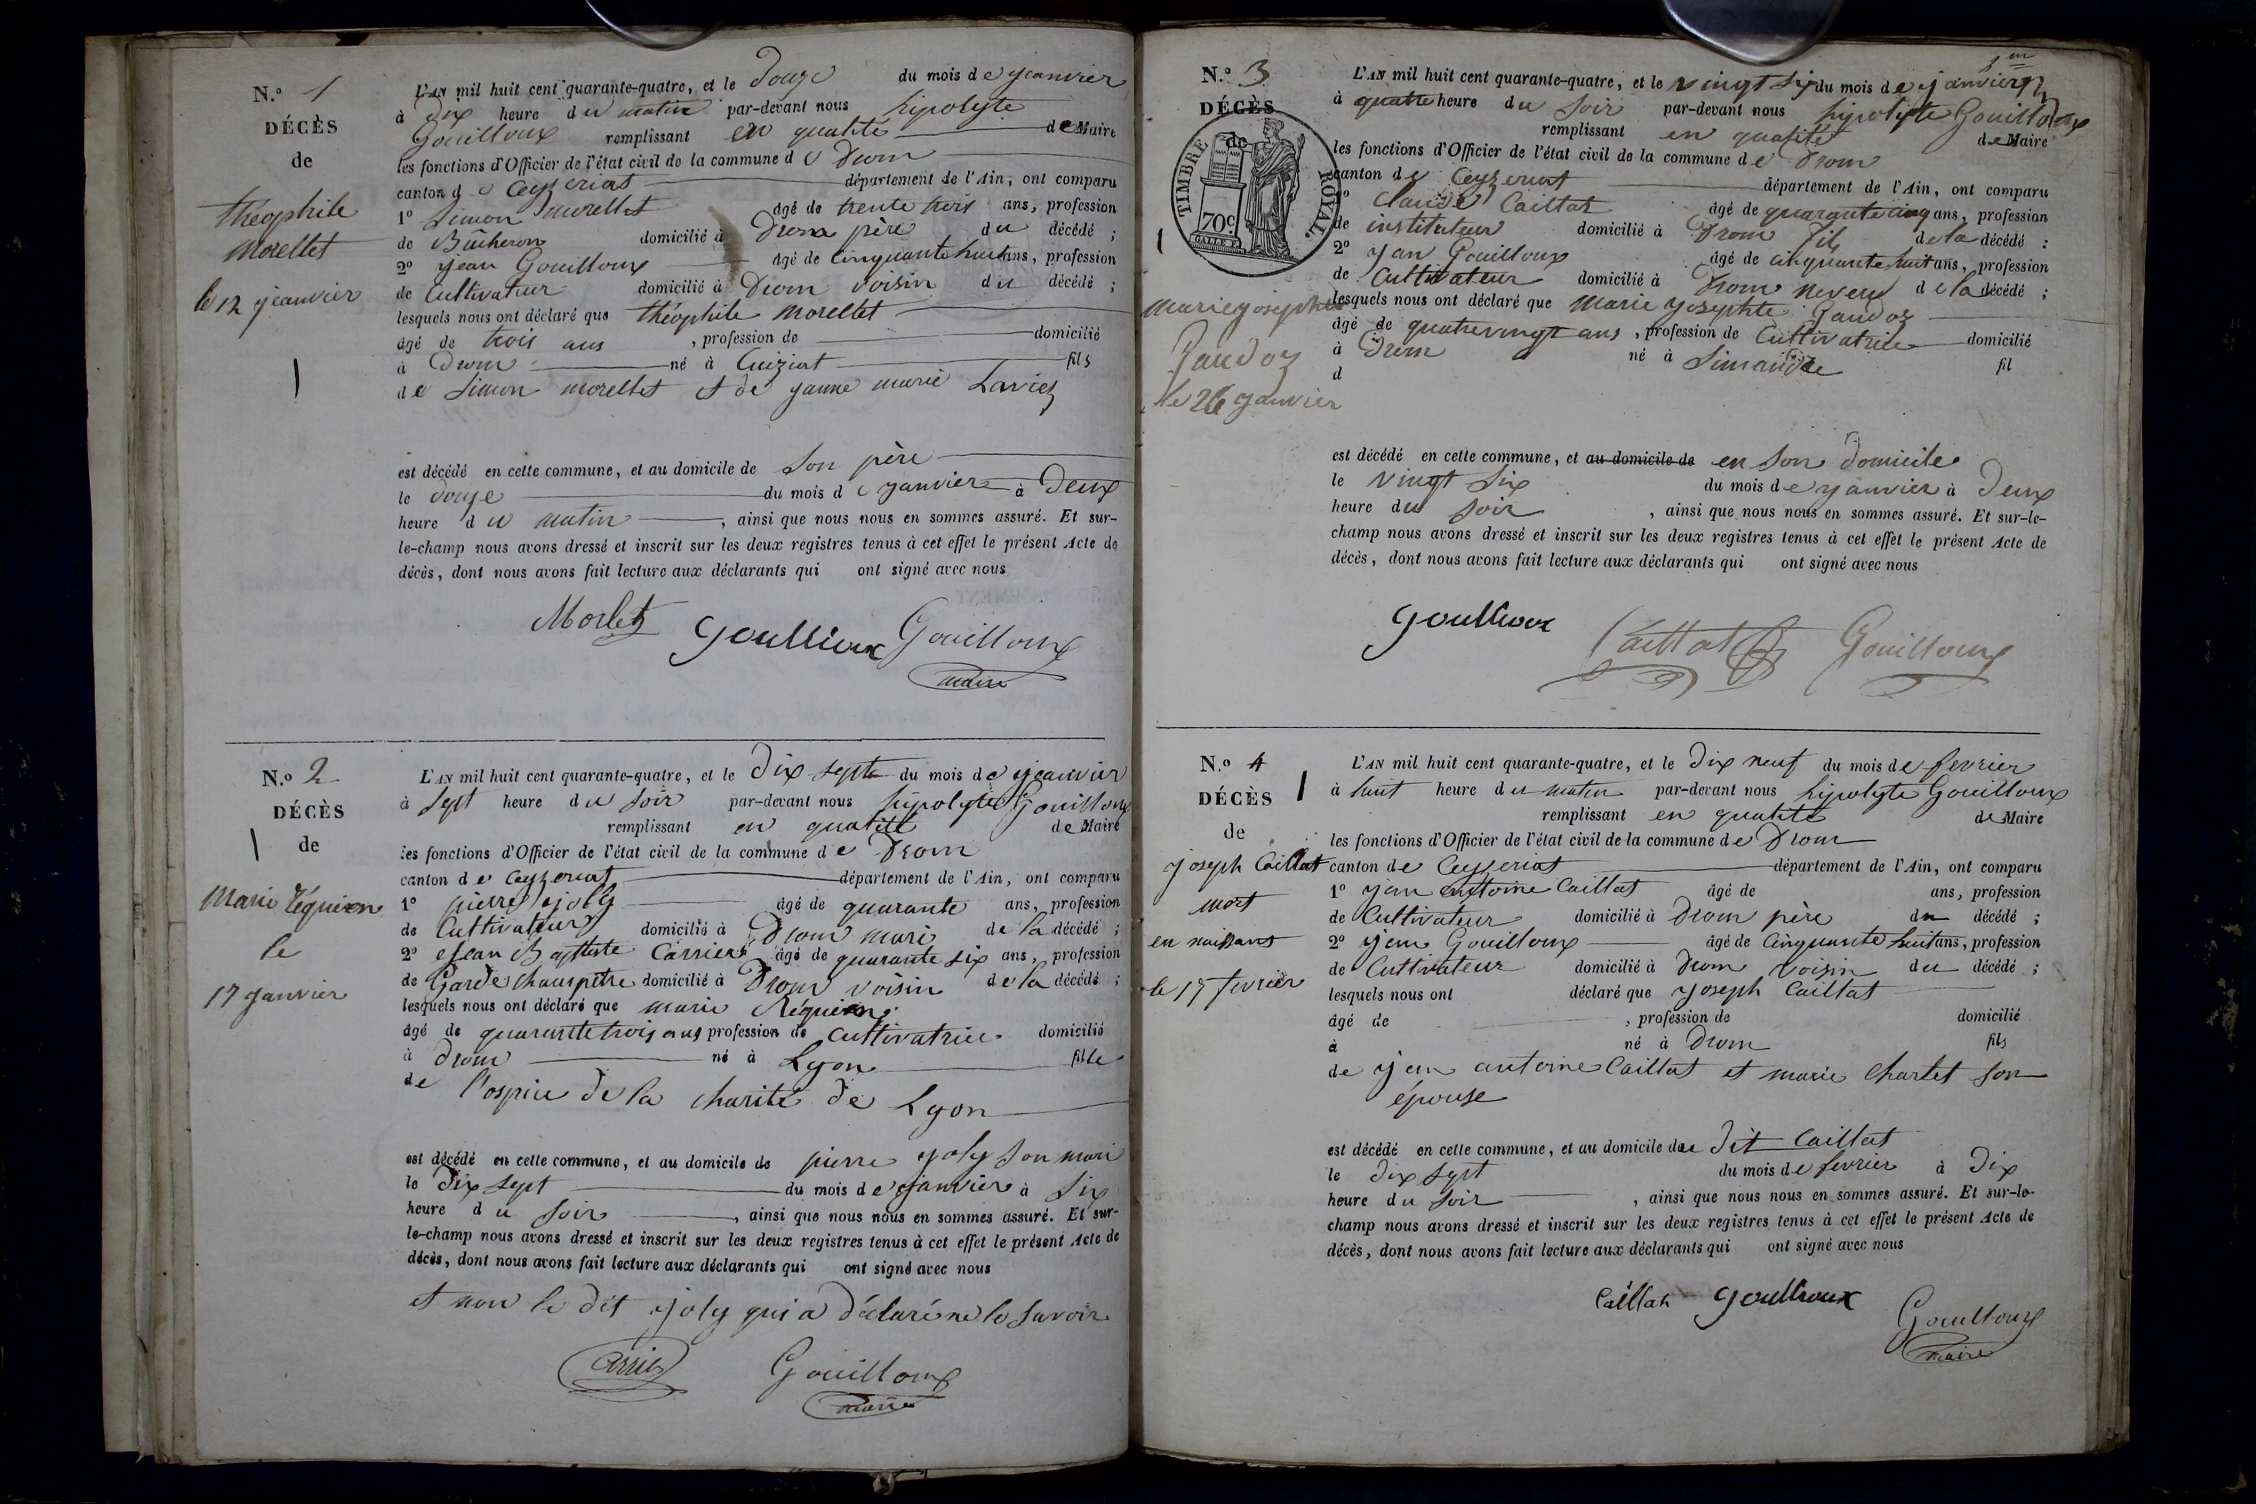 N.o 1
DÉCÈS
de
théophile
Morellet
le 12 janvier
L'AN mil huit cent quarante-quatre, et le Douze du mois de janvier
à Dix heure du matin par-devant nous hipolyte
Gouilloux remplissant en qualité de Maire
les fonctions d'Officier de l'état civil de la commune de Drom
canton de Ceyzeriat département de l'Ain, ont comparu
1o Simon Morellet âgé de trente trois ans, profession
de Bûcheron domicilié à Drom père du décédé ;
2o jean Gouilloux âgé de cinquante huit ans, profession
de Cultivateur domicilié à Drom voisin du décédé ;
lesquels nous ont déclaré que théophile Morellet
âgé de trois ans , profession de domicilié
à Drom né à Cuiziat fils
de Simon morellet et de janne marie
est décédé en cette commune, et au domicile de son père
le douze du mois de janvier à Deux
heure du matin , ainsi que nous nous en sommes assuré. Et sur-
le-champ nous avons dressé et inscrit sur les deux registres tenus à cet effet le présent Acte de
décès, dont nous avons fait lecture aux déclarants qui ont signé avec nous
Morlet Goullioux Gouilloux
maire
N.o 2
DÉCÈS
de
Marie Réquien
le
17 janvier
L'AN mil huit cent quarante-quatre, et le Dix sept du mois de janvier
à sept heure du soir par-devant nous hipolyte Gouilloux
remplissant en qualité de Maire
les fonctions d'Officier de l'état civil de la commune de Drom
canton de Ceyzeriat département de l'Ain, ont comparu
1o pierre joly âgé de quarante ans, profession
de Cultivateur domicilié à Drom mari de la décédé ;
2o Jean Baptiste Carrier âgé de quarante six ans, profession
de Garde champetre domicilié à Drom voisin de la décédé ;
lesquels nous ont déclaré que marie Réquien
âgé de quarante trois ans profession de cultivatrice domicilié
à Drom né à Lyon fille
de l'ospice de la charité de Lyon
est décédé en cette commune, et au domicile de pierre joly son mari
le Dix sept du mois de janvier à six
heure du soir , ainsi que nous nous en sommes assuré. Et sur-
le-champ nous avons dressé et inscrit sur les deux registres tenus à cet effet le présent Acte de
décès, dont nous avons fait lecture aux déclarants qui ont signé avec nous
et non le dit joly qui a déclaré ne le savoir
Carrier Gouilloux
maire
N.o 3
DÉCÈS
de
TIMBRE ROYAL
70c
Marie josephte
Gaudoz
le 26 janvier
L'AN mil huit cent quarante-quatre, et le vingt six du mois de janvier
à quatre heure du soir par-devant nous hipolyte Gouilloux
remplissant en qualité de Maire
les fonctions d'Officier de l'état civil de la commune de Drom
canton de Ceyzeriat département de l'Ain, ont comparu
1o Claude Caillat âgé de quarante cinq ans, profession
de instituteur domicilié à Drom fils de la décédé ;
2o jean Gouilloux âgé de cinquante huit ans, profession
de Cultivateur domicilié à Drom neveu de la décédé ;
lesquels nous ont déclaré que Marie josephte Gaudoz
âgé de quatre vingt ans , profession de Cultivatrice domicilié
à Drom né à Simandre fil
d
est décédé en cette commune, et au domicile de en son domicile
le vingt six du mois de janvier à Deux
heure du soir , ainsi que nous nous en sommes assuré. Et sur-le-
champ nous avons dressé et inscrit sur les deux registres tenus à cet effet le présent Acte de
décès, dont nous avons fait lecture aux déclarants qui ont signé avec nous
Goullioux Caillat Gouilloux
N.o 4
DÉCÈS
de
joseph Caillat
mort
en naissant
le 17 fevrier
L'AN mil huit cent quarante-quatre, et le Dix neuf du mois de fevrier
à huit heure du matin par-devant nous hipolyte Gouilloux
remplissant en qualité de Maire
les fonctions d'Officier de l'état civil de la commune de Drom
canton de Ceyzeriat département de l'Ain, ont comparu
1o jean antoine Caillat âgé de ans, profession
de Cultivateur domicilié à Drom père du décédé ;
2o jean Gouilloux âgé de cinquante huit ans, profession
de Cultivateur domicilié à Drom voisin du décédé ;
lesquels nous ont déclaré que joseph Caillat
âgé de , profession de domicilié
à né à Drom fils
de jean antoine Caillat et marie Charlet son
épouse
est décédé en cette commune, et au domicile due dit Caillat
le dix sept du mois de fevrier à Dix
heure du soir , ainsi que nous nous en sommes assuré. Et sur-le-
champ nous avons dressé et inscrit sur les deux registres tenus à cet effet le présent Acte de
décès, dont nous avons fait lecture aux déclarants qui ont signé avec nous
Caillat Goullioux Gouilloux
maire